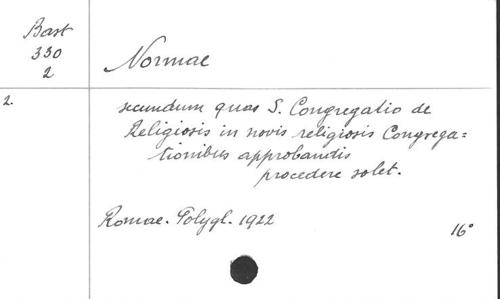 Bast
330
2
Normae
2.
secundum quas S. Congregatio de
Religiosis in novis religiosis Congrega=
tionibus approbandis
procedere solet.
Romae. Polygl. 1922
16°